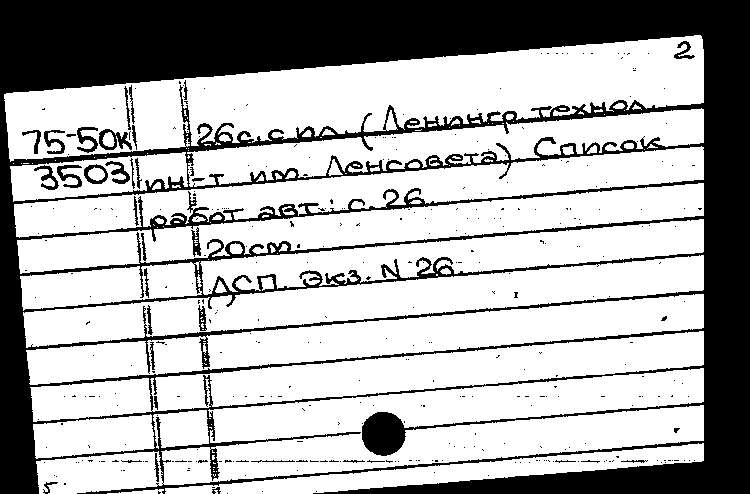 2
75-50к 26с. с ил. (Ленингр. технол.
3503 ин-т им. Ленсовета) Список
работ авт.: с. 26.
20см.
ДСП. Экз. N 26.
5